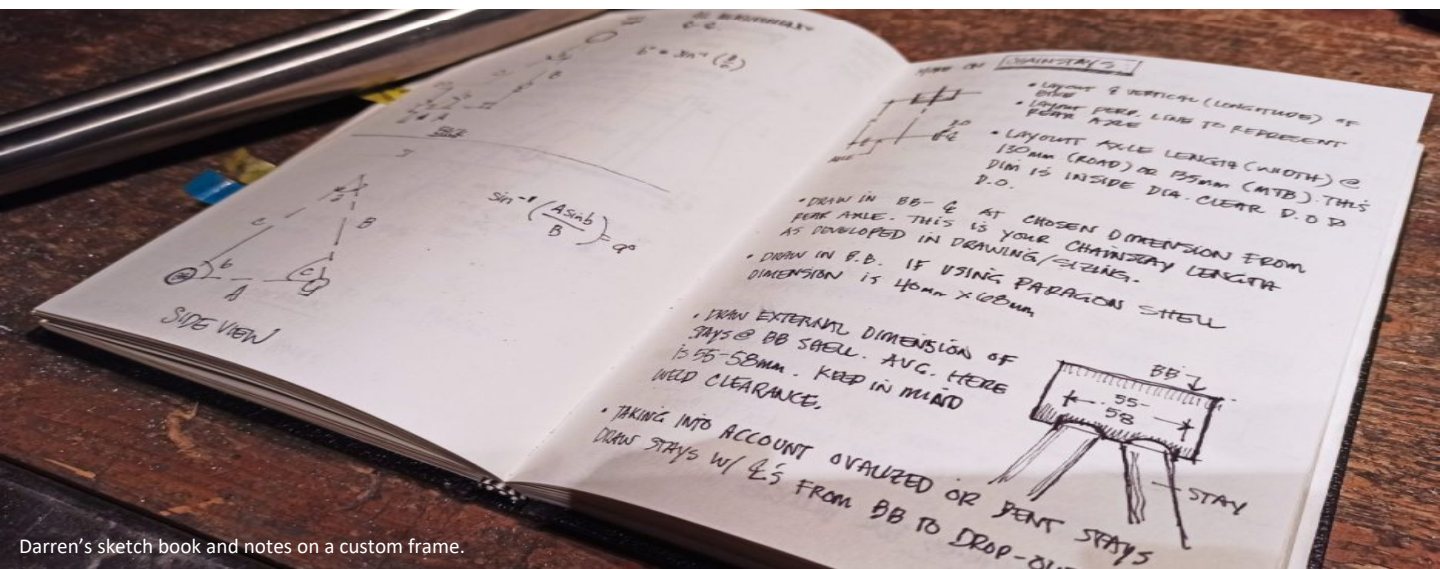 sin⁻¹ (A sin b / B) = a°
C
b
B
A
C
SIDE VIEW
MORE ON CHAINSTAYS:
• LAYOUT ℄ VERTICAL (LONGITUDE) OF
BIKE
• LAYOUT PERP. LINE TO REPRESENT
REAR AXLE
• LAYOUT AXLE LENGTH (WIDTH) @
130mm (ROAD) OR 135mm (MTB). THIS
DIM IS INSIDE DIA. CLEAR D.O TO
D.O.
• DRAW IN BB-℄ AT CHOSEN DIMENSION FROM
REAR AXLE. THIS IS YOUR CHAINSTAY LENGTH
AS DEVELOPED IN DRAWING/SIZING.
• DRAW IN B.B. IF USING PARAGON SHELL
DIMENSION IS 40mm X 68mm
• DRAW EXTERNAL DIMENSION OF
STAYS @ BB SHELL. AVG. HERE
IS 55-58mm. KEEP IN MIND
WELD CLEARANCE.
BB
55-
58
STAY
• TAKING INTO ACCOUNT OVALIZED OR BENT STAYS
DRAW STAYS W/ ℄'S FROM BB TO DROP-OUT
Darren's sketch book and notes on a custom frame.